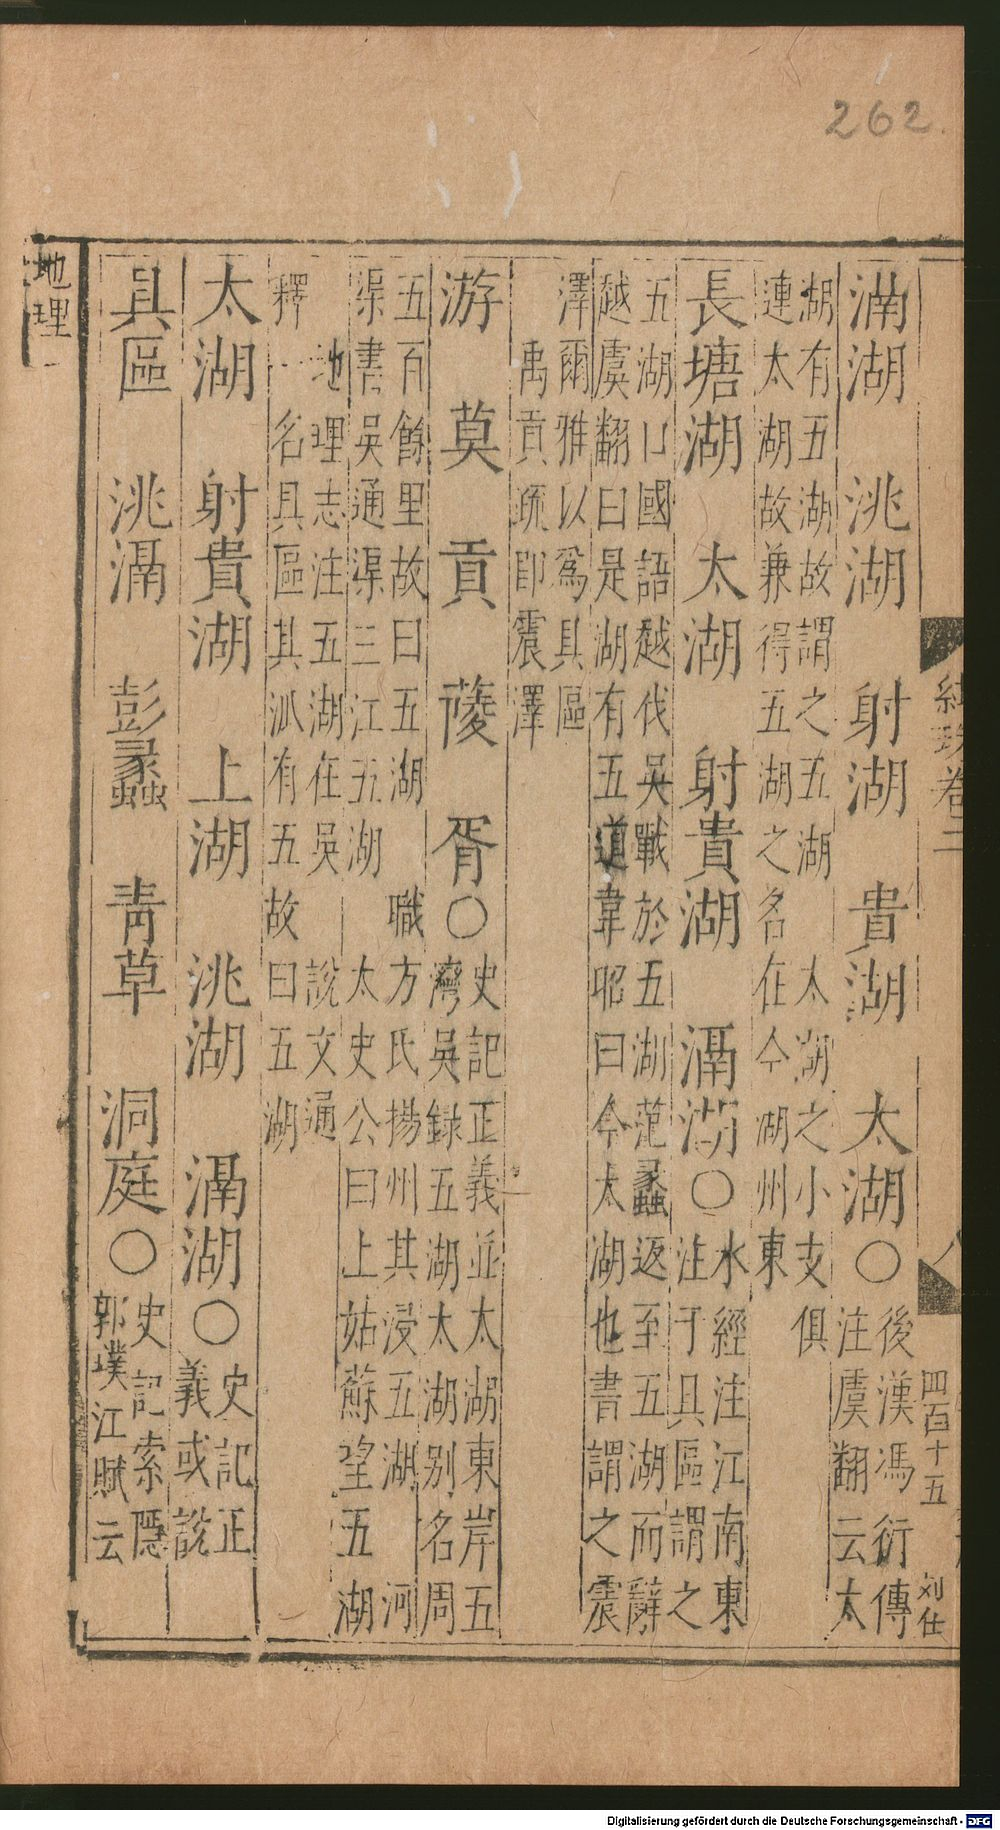 紺珠卷二
八
四百十五
刘仕
滆湖　洮湖　射湖　貴湖　太湖〇後漢馮衍傳
注虞翻云太
湖有五湖故謂之五湖　太湖之小支俱
連太湖故兼得五湖之名在今湖州東
長塘湖　太湖　射貴湖　滆湖〇水經注江南東
注于具區謂之
五湖口國語越伐吳戰於五湖范蠡返至五湖而辭
越虞翻曰是湖有五道韋昭曰今太湖也書謂之震
澤爾雅以爲具區
禹貢疏即震澤
游　莫　貢　蔆　胥〇史記正義並太湖東岸五
灣吳録五湖太湖别名周
五百餘里故曰五湖　職方氏揚州其浸五湖　河
渠書吳通渠三江五湖　太史公曰上姑蘇望五湖
地理志注五湖在吳　說文通
釋一名具區其派有五故曰五湖
太湖　射貴湖　上湖　洮湖　滆湖〇史記正
義或說
具區　洮滆　彭蠡　青草　洞庭〇史記索隱
郭璞江賦云
地理一
262.
Digitalisierung gefördert durch die Deutsche Forschungsgemeinschaft - DFG